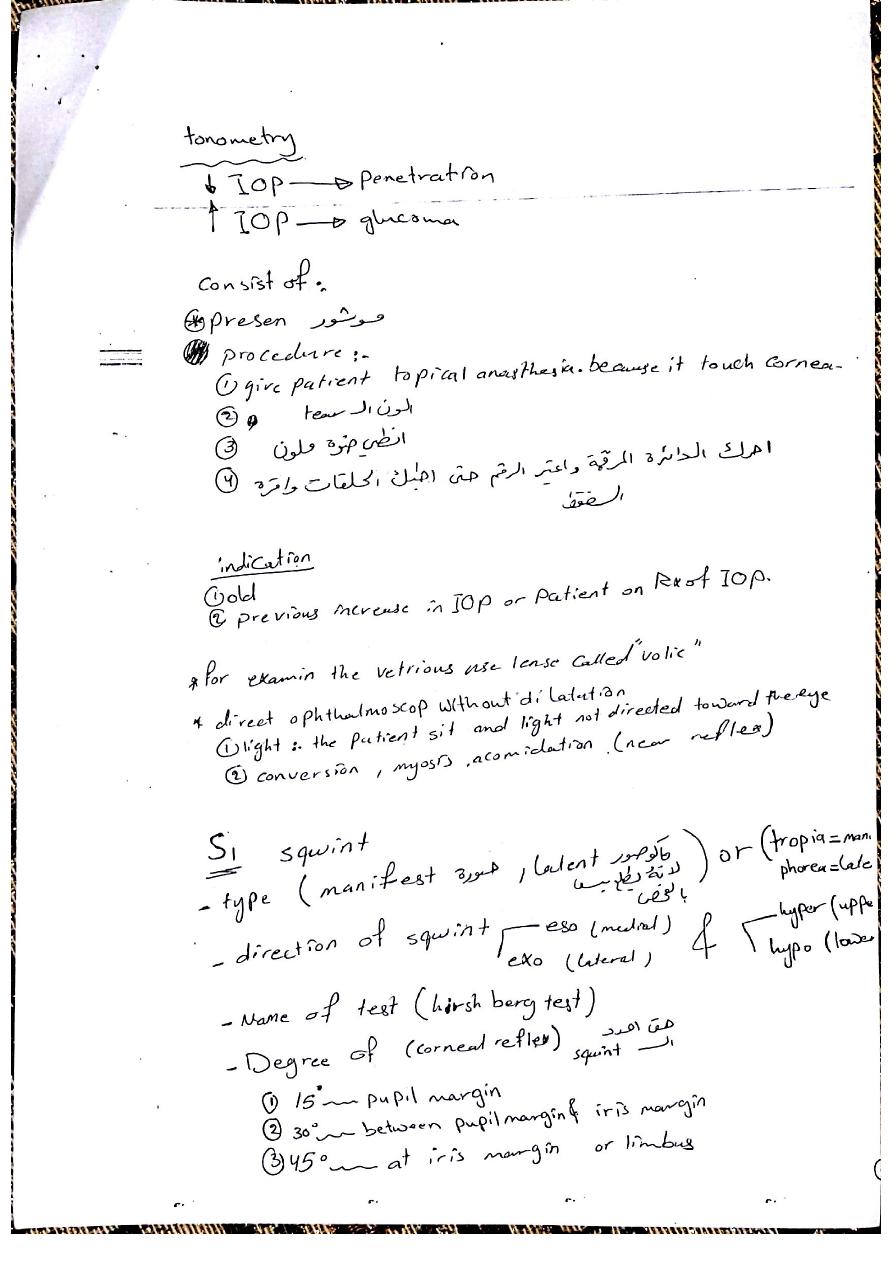 tonometry
↓ IOP → penetration
↑ IOP → glucoma
consist of :
* presen موشور
procedure :-
① give patient topical anasthesia. because it touch cornea-
② الون الـ tear
③ انطي ضوة ملون
④ احرك الدائرة المرقمة واعتبر الرقم حتى اطبك الحلقات واقرة
الضغط
indication
① old
② previous increase in IOP or patient on Rx of IOP.
* for examin the vetrious use lense called "volic"
* direct ophthalmoscop without dilatation
① light :- the patient sit and light not directed toward the eye
② conversion , myosis , acomidation . (near reflex)
S1 squint
- type (manifest صورة , latent ماكو صور
بالفحص ) or (tropia = man.
phorea = late
- direction of squint eso (medial) & hyper (uppe
exo (lateral) hypo (lower
- Name of test (hirsh berg test)
- Degree of (corneal reflex) حتى احدد
الـ squint
① 15° pupil margin
② 30° between pupil margin & iris margin
③ 45° at iris margin or limbus